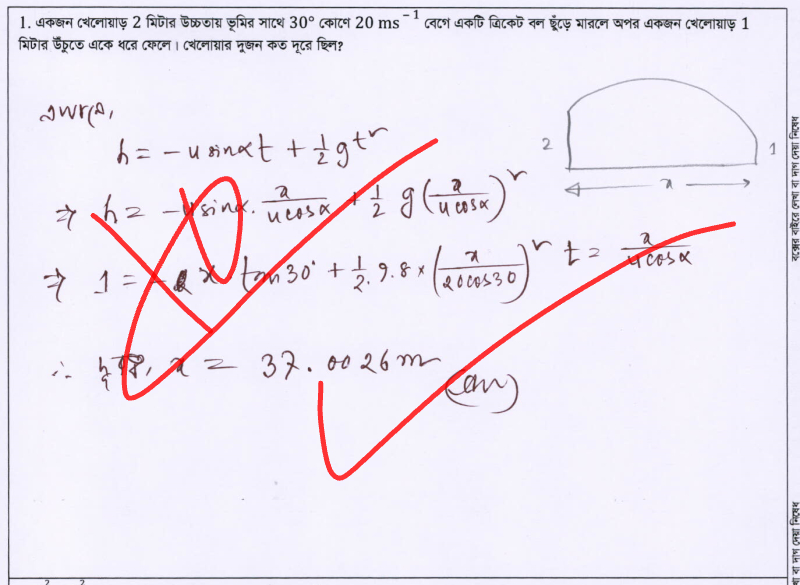 1. একজন খেলোয়াড় 2 মিটার উচ্চতায় ভূমির সাথে 30° কোণে 20 ms⁻¹ বেগে একটি ত্রিকেট বল ছুঁড়ে মারলে অপর একজন খেলোয়াড় 1
মিটার উঁচুতে একে ধরে ফেলে। খেলোয়ার দুজন কত দূরে ছিল?
h = -u sinα t + ½ g t²
2
1
x
⇒ h = -u sinα. x/(u cosα) + ½ g (x/(u cosα))²
⇒ 1 = - x tan 30° + ½. 9.8 × (x/(20 cos30))²
t = x/(u cosα)
x = 37.0026 m
(Ans)
বক্সের বাইরে লেখা বা দাগ দেয়া নিষেধ
যা বা দাগ দেয়া নিষেধ